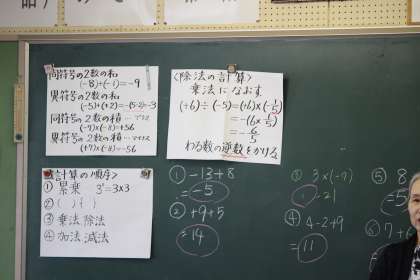 同符号の2数の和
(-8)+(-1)=-9
異符号の2数の和
(-5)+(+2)=-(5-2)=-3
同符号の2数の積…プラス
(-7)×(-8)=+56
異符号の2数の積…マイナス
(+7)×(-8)=-56
<除法の計算>
乗法になおす
(+6)÷(-5)=(+6)×(-1/5)
=-(6×1/5)
=-6/5
わる数の逆数をかける
<計算の順序>
① 累乗 3²=3×3
② ( ) { }
③ 乗法,除法
④ 加法,減法
① -13+8
=-5
② +9+5
=14
3 3×(-7)
-21
④ 4-2+9
11
⑤ 8
5
⑥ 7+